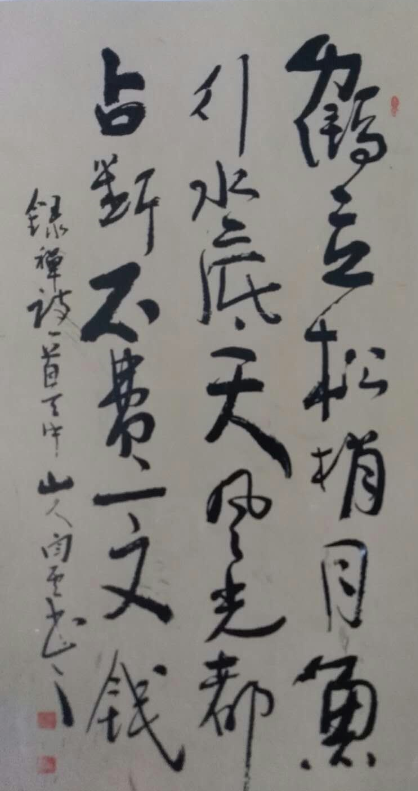 鶴立松梢月魚
行水底天風光都
占斷不費一文錢
録禪詩一首天中山人